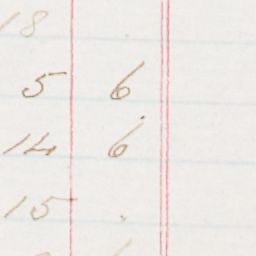 18
5 6
14 6
15 .